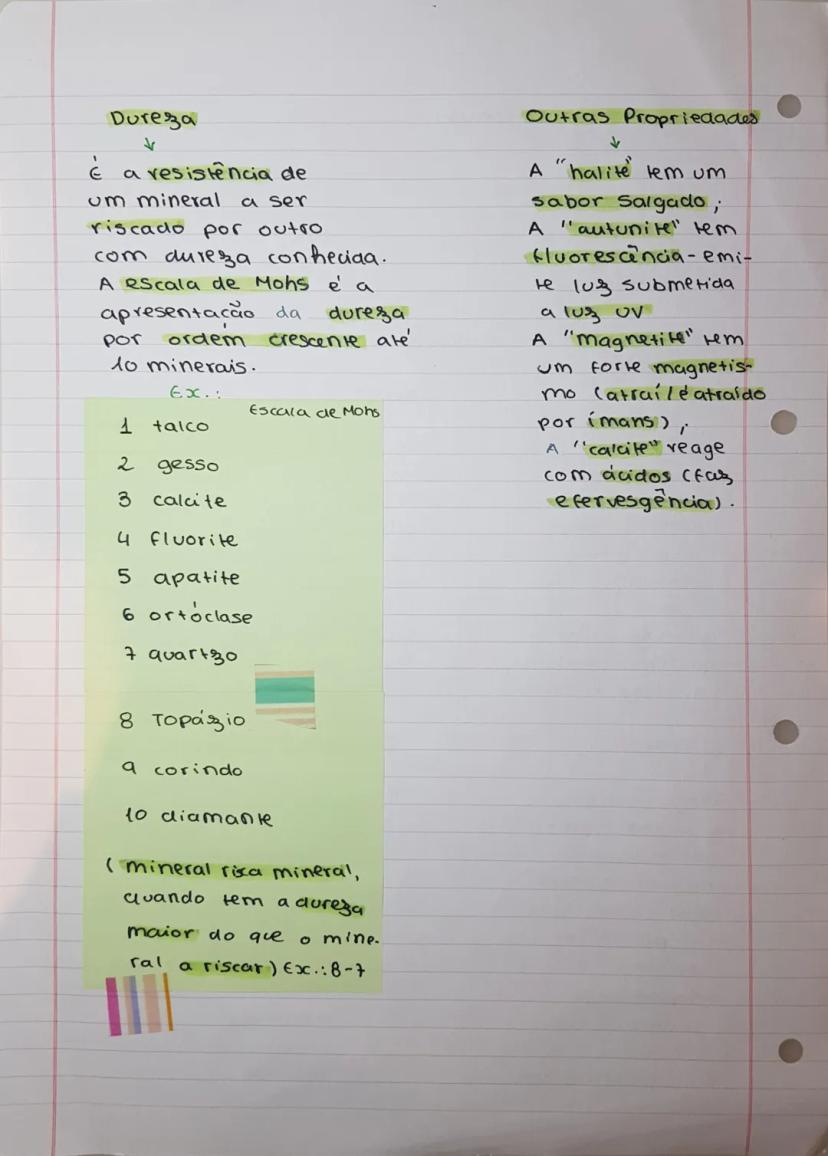 Dureza
É a resistência de
um mineral a ser
riscado por outro
com dureza conhecida.
A escala de Mohs é a
apresentação da dureza
por ordem crescente até
10 minerais.
Ex.:
Escala de Mohs
1 talco
2 gesso
3 calcite
4 fluorite
5 apatite
6 ortóclase
7 quartzo
8 Topázio
9 corindo
10 diamante
(mineral risca mineral,
quando tem a dureza
maior do que o mine-
ral a riscar) Ex.: 8-7
Outras Propriedades
A "halite" tem um
sabor salgado;
A "autunite" tem
fluorescência - emi-
te luz submetida
a luz UV
A "magnetite" tem
um forte magnetis-
mo (atraí/é atraído
por ímans);
A "calcite" reage
com ácidos (faz
efervesgência).